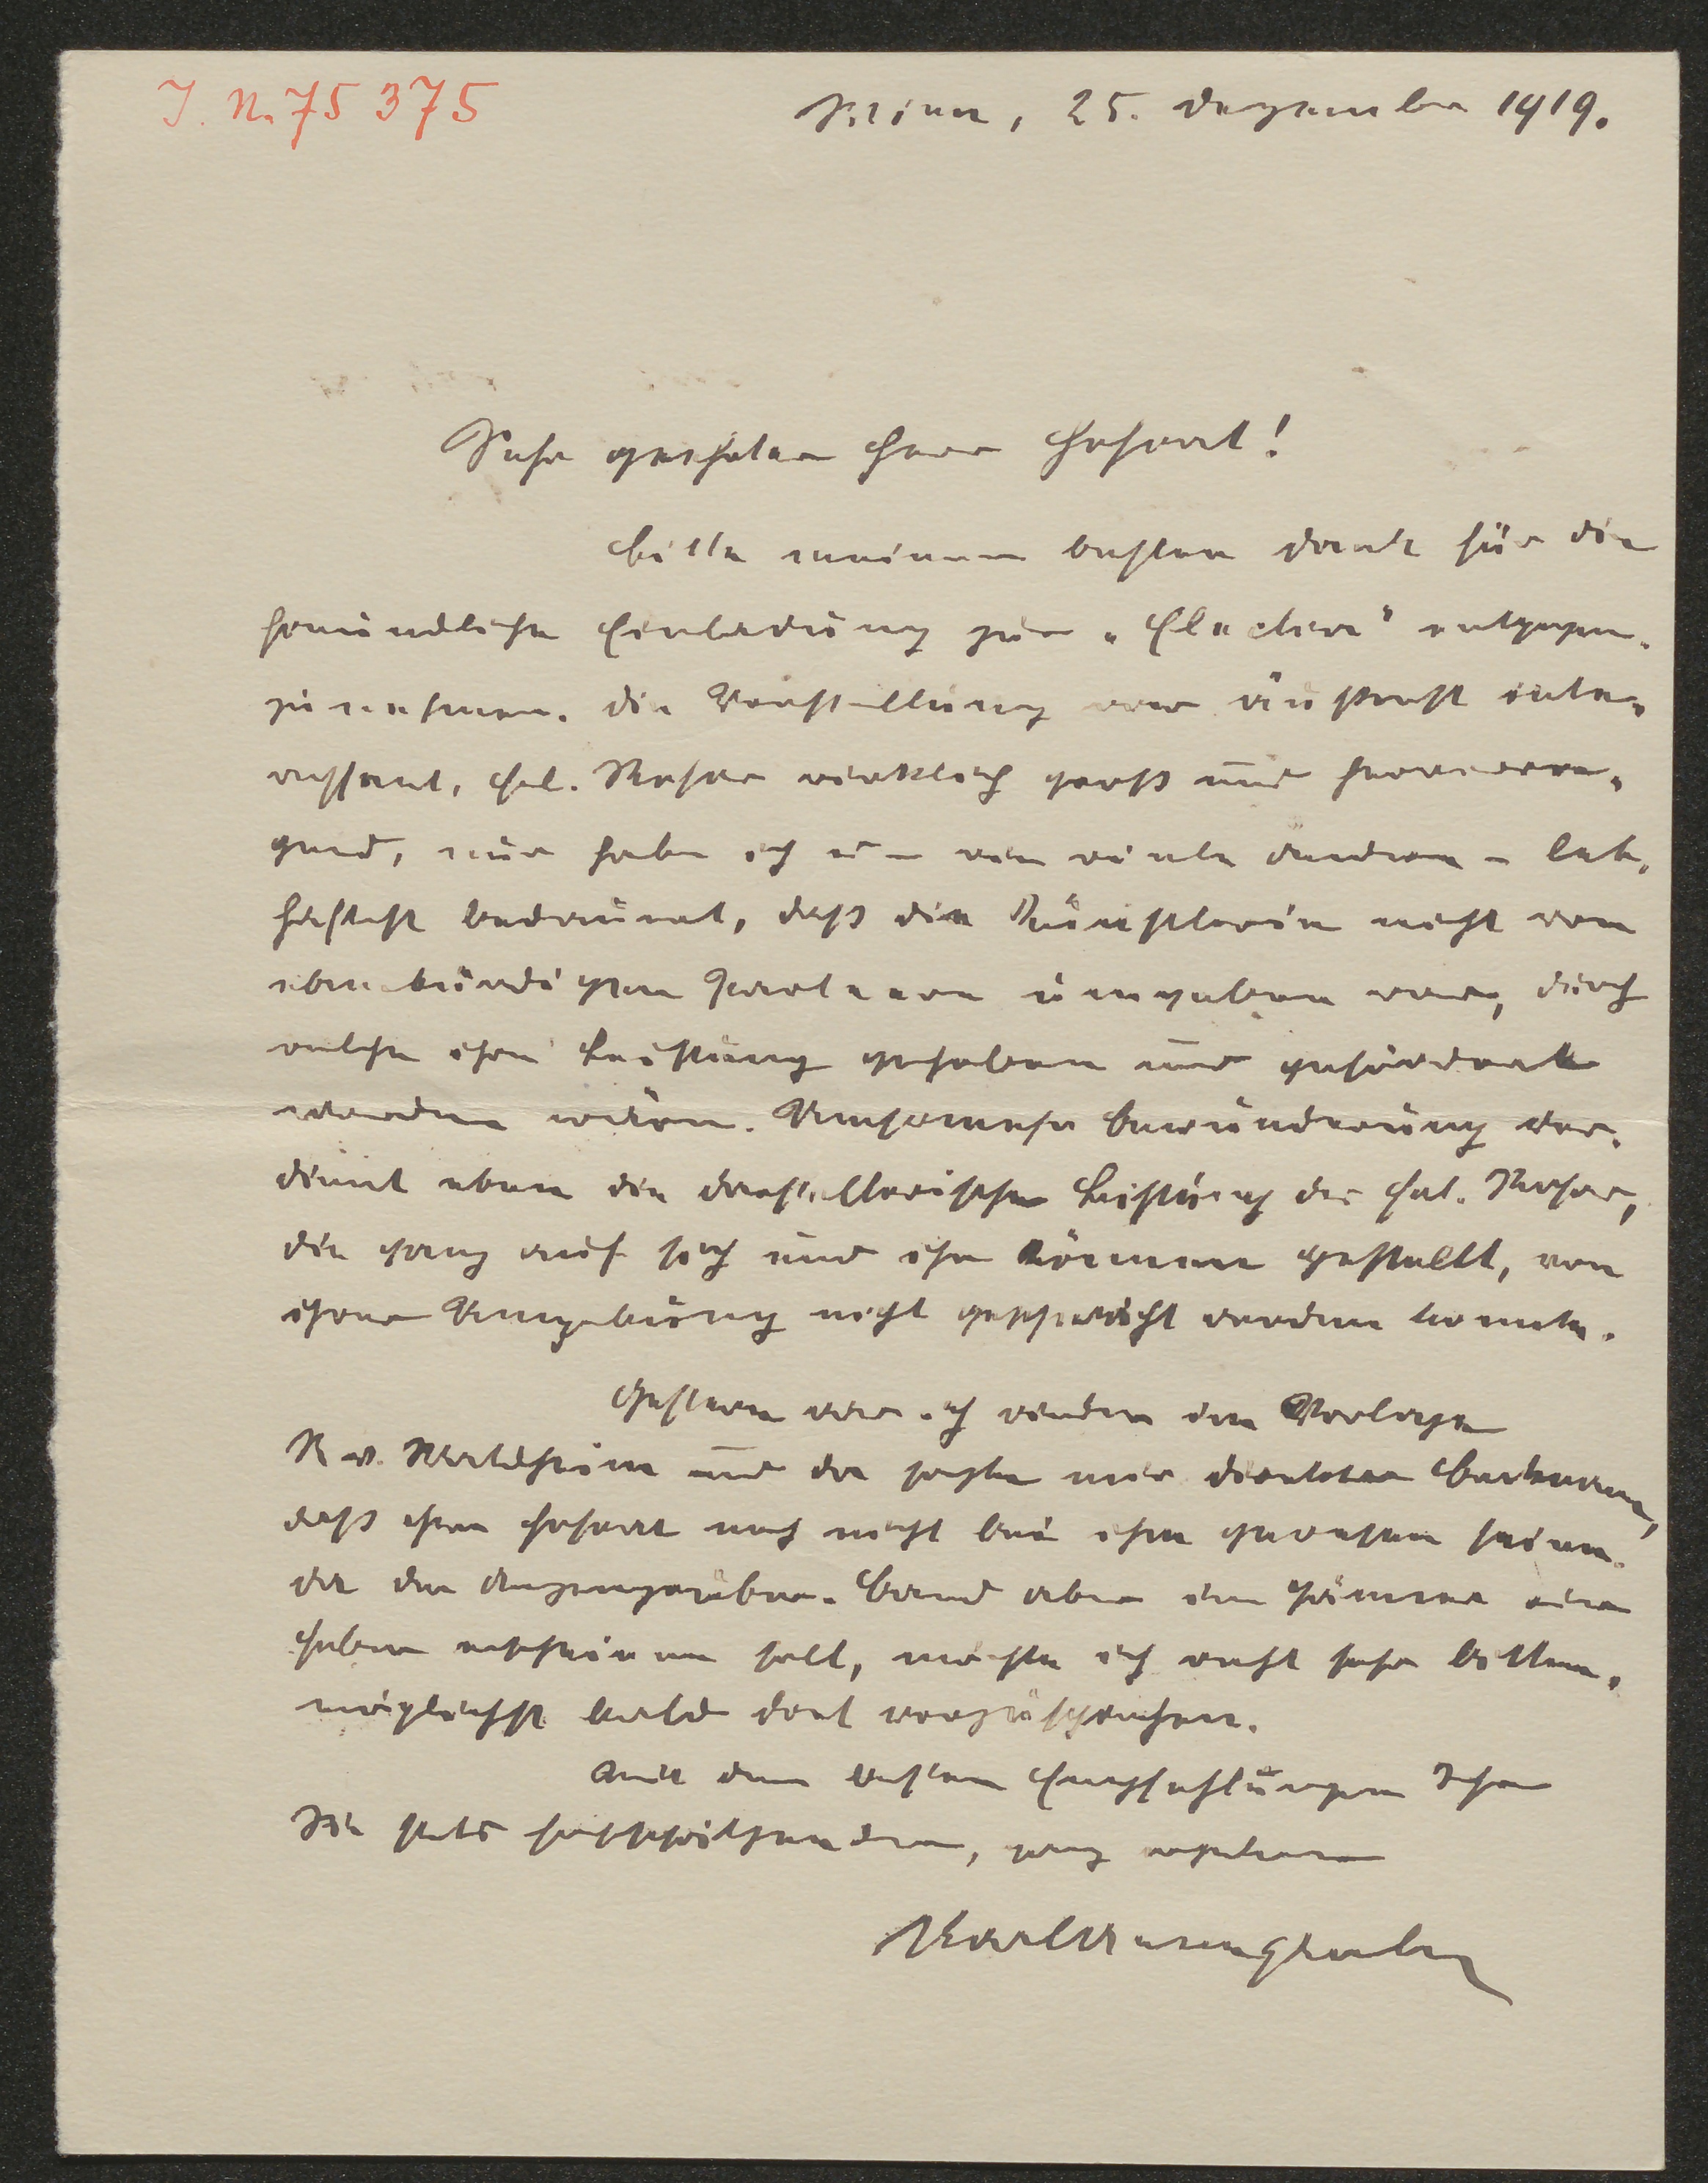 J. N. 75375
Wien, 25. Dezember 1919.
Sehr geehrter Herr Hofrat!
Bitte meinen besten Dank für die
freundliche Einladung zur „Electra" entgegen-
zunehmen. Die Vorstellung war äußerst inte-
ressant, Frl. Mayer wirklich groß und hervorra-
gend, nur habe ich u – wie viele andere – leb-
haftest bedauert, daß die Künstlerin nicht von
ebenbürdigen Partnern umgeben war, durch
welche ihre Leistung gehoben und gefördert
worden wäre. Umsomehr Bewunderung ver-
dient eben die darstellerische Leistung des Frl. Mayer,
die ganz auf sich und ihr Können gestellt, von
ihrer Umgebung nicht geschwächt werden konnte.
Gestern war ich wieder im Verlage
R. v. Waldheim und da sagte mir Direktor
daß Herr Hofrat noch nicht bei ihm gewesen seien.
Da der Anzengruber-Band aber im Jänner
haben erscheinen soll, möchte ich recht sehr bitten,
möglichst bald dort vorzusprechen.
Mit den besten Empfehlungen Ihr
Sie stets hochschätzender, ganz ergebener
Karl Anzengruber